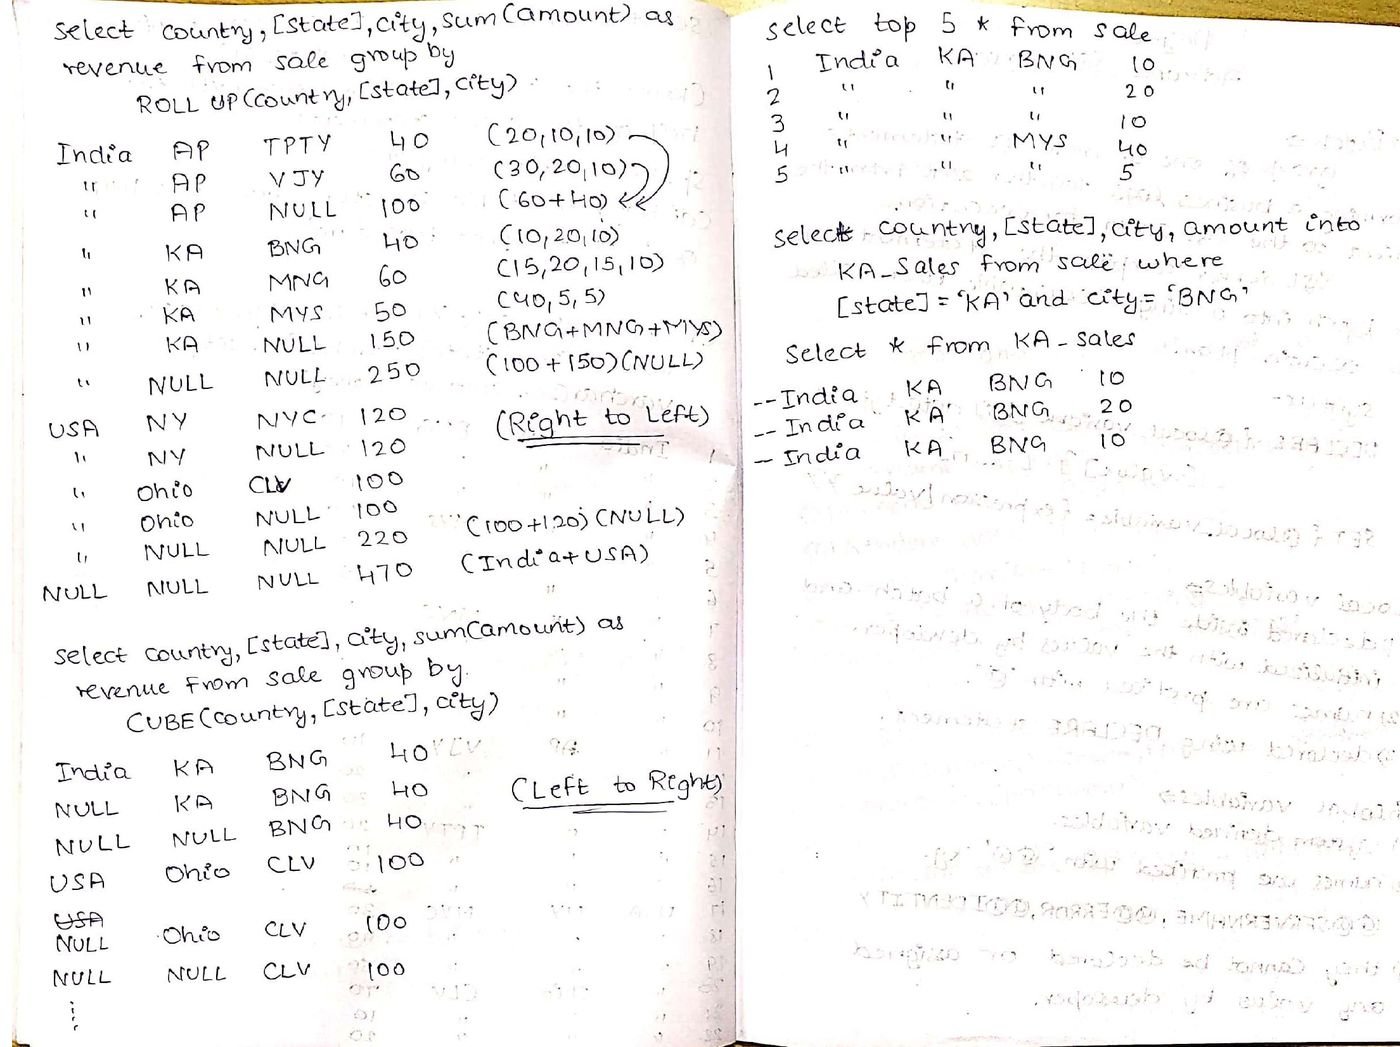 Select country, [state], city, sum(amount) as
revenue from sale group by
ROLL UP (country, [state], city)
India AP TPTY 40 (20,10,10)
" AP VJY 60 (30,20,10)
" AP NULL 100 (60+40)
" KA BNG 40 (10,20,10)
" KA MNG 60 (15,20,15,10)
" KA MYS 50 (40,5,5)
" KA NULL 150 (BNG+MNG+MYS)
" NULL NULL 250 (100+150) (NULL)
USA NY NYC 120 (Right to Left)
" NY NULL 120
" Ohio CLV 100
" Ohio NULL 100
" NULL NULL 220 (100+120) (NULL)
NULL NULL NULL 470 (India+USA)
Select country, [state], city, sum(amount) as
revenue from sale group by
CUBE(country, [state], city)
India KA BNG 40
NULL KA BNG 40 (Left to Right)
NULL NULL BNG 40
USA Ohio CLV 100
USA
NULL Ohio CLV 100
NULL NULL CLV 100
select top 5 * from sale
1 India KA BNG 10
2 " " " 20
3 " " " 10
4 " " MYS 40
5 " " " 5
select country, [state], city, amount into
KA_Sales from sale where
[state] = 'KA' and city = 'BNG'
Select * from KA-sales
-- India KA BNG 10
-- India KA BNG 20
- India KA BNG 10